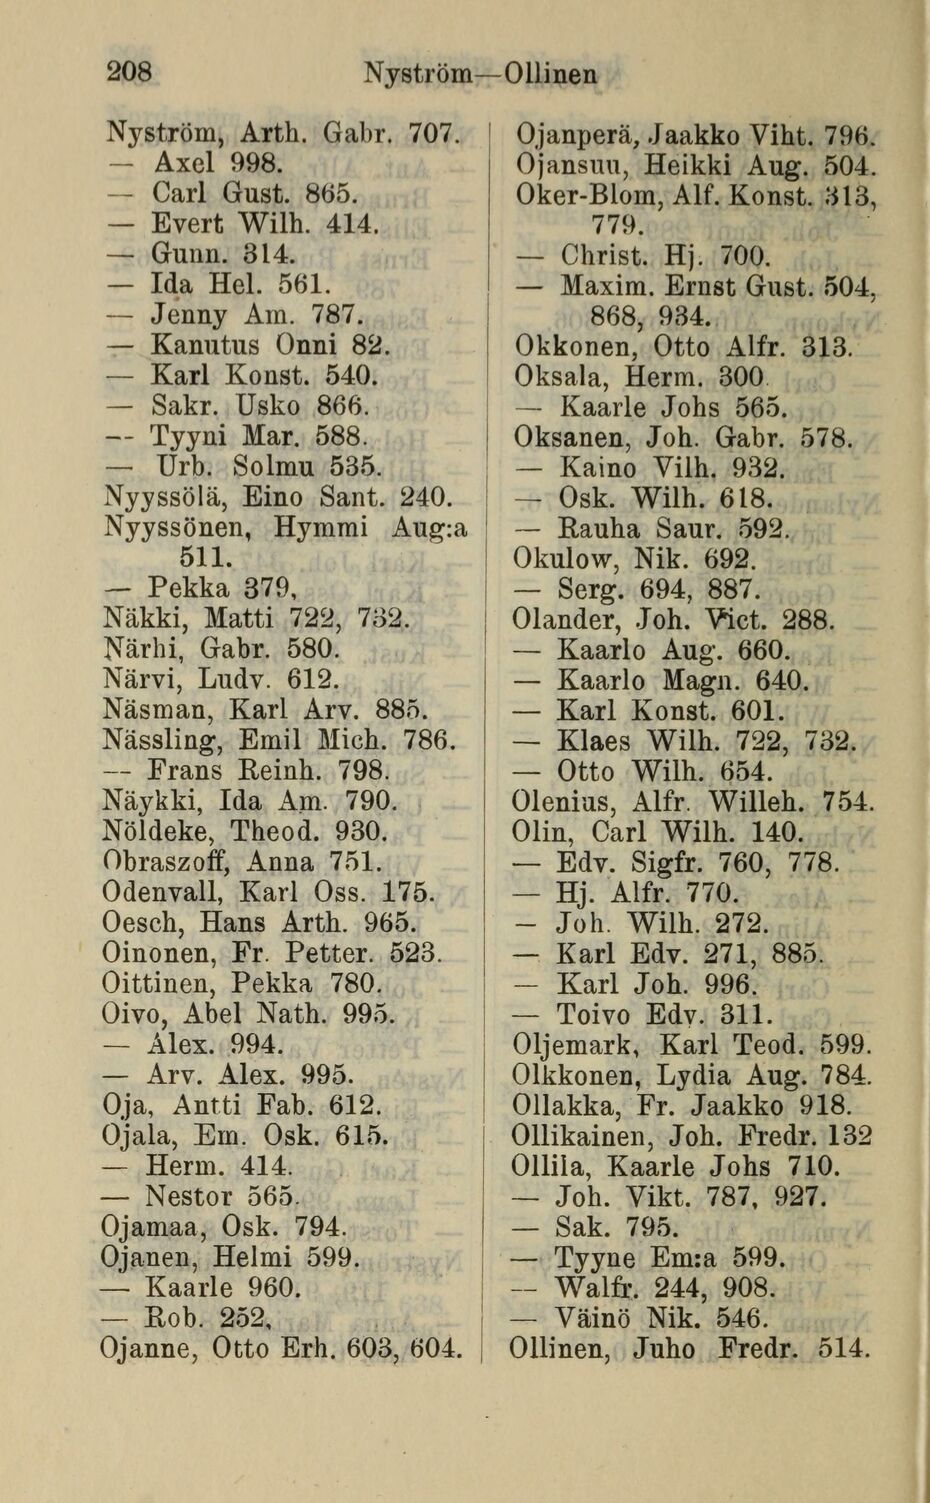 208
Nyström—Ollinen
Nyström, Arth. Gabr. 707.
— Axel 998.
— Carl Gust. 865.
— Evert Wilh. 414.
— Gunn. 314.
— Ida Hel. 561.
— Jenny Am. 787.
— Kanutus Onni 82.
— Karl Konst. 540.
— Sakr. Usko 866.
— Tyyni Mar. 588.
— Urb. Solmu 535.
Nyyssölä, Eino Sant. 240.
Nyyssönen, Hymmi Aug:a
511.
— Pekka 379,
Näkki, Matti 722, 732.
Närhi, Gabr. 580.
Närvi, Ludv. 612.
Näsman, Karl Arv. 885.
Nässling, Emil Mich. 786.
— Frans Reinh. 798.
Näykki, Ida Am. 790.
Nöldeke, Theod. 930.
Obraszoff, Anna 751.
Odenvall, Karl Oss. 175.
Oesch, Hans Arth. 965.
Oinonen, Fr. Petter. 523.
Oittinen, Pekka 780.
Oivo, Abel Nath. 995.
— Alex. 994.
— Arv. Alex. 995.
Oja, Antti Fab. 612.
Ojala, Em. Osk. 615.
— Herm. 414.
— Nestor 565.
Ojamaa, Osk. 794.
Ojanen, Helmi 599.
— Kaarle 960.
— Rob. 252,
Ojanne, Otto Erh. 603, 604.
Ojanperä, Jaakko Viht. 796.
Ojansuu, Heikki Aug. 504.
Oker-Blom, Alf. Konst. 313,
779.
— Christ. Hj. 700.
— Maxim. Ernst Gust. 504,
868, 934.
Okkonen, Otto Alfr. 313.
Oksala, Herm. 300
— Kaarle Johs 565.
Oksanen, Joh. Gabr. 578.
— Kaino Vilh. 932.
— Osk. Wilh. 618.
— Rauha Saur. 592.
Okulow, Nik. 692.
— Serg. 694, 887.
Olander, Joh. Vict. 288.
— Kaarlo Aug. 660.
— Kaarlo Magn. 640.
— Karl Konst. 601.
— Klaes Wilh. 722, 732.
— Otto Wilh. 654.
Olenius, Alfr. Willeh. 754.
Olin, Carl Wilh. 140.
— Edv. Sigfr. 760, 778.
— Hj. Alfr. 770.
— Joh. Wilh. 272.
— Karl Edv. 271, 885.
— Karl Joh. 996.
— Toivo Edv. 311.
Oljemark, Karl Teod. 599.
Olkkonen, Lydia Aug. 784.
Ollakka, Fr. Jaakko 918.
Ollikainen, Joh. Fredr. 132
Ollila, Kaarle Johs 710.
— Joh. Vikt. 787, 927.
— Sak. 795.
— Tyyne Em:a 599.
— Walfr. 244, 908.
— Väinö Nik. 546.
Ollinen, Juho Fredr. 514.